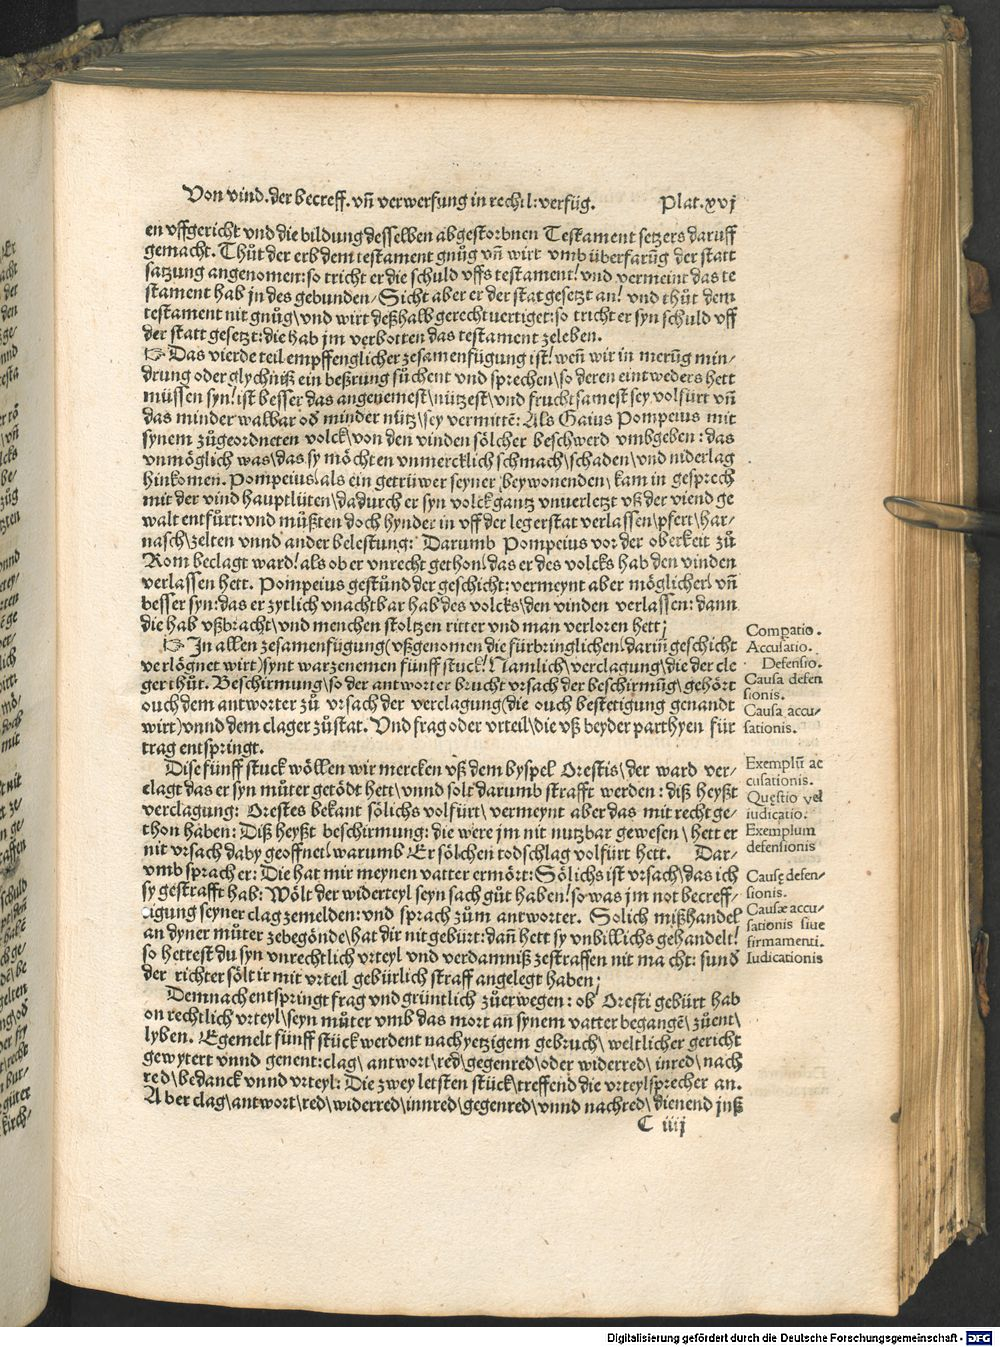 Von vind. der becreff. vñ verwerfung in rechtl: verfüg. Plat. xvj
en vffgericht vnd die bildung desselben abgestorbnen Testament setzers daruff
gemacht. Thüt der erb dem testament gnůg vñ wirt vmb überfarũg der statt
satzung angenomen: so tricht er die schuld vffs testament/ vnd vermeint das te
stament hab jn des gebunden/ Sicht aber er der stat gesetzt an/ vnd thüt dem
testament nit gnůg\ vnd wirt deßhalb gerechtuertiget: so tricht er syn schuld vff
der statt gesetzt: die hab jm verbotten das testament zeleben.
☞ Das vierde teil empffenglicher zesamenfügung ist/ weñ wir in merũg min/
drung oder glychniß ein beßrung sůchent vnd sprechen\ so deren eintweders hett
müssen syn/ ist besser das angenemest\ nützest\ vnd fruchtsamest sey volfürt vñ
das minder walbar oð minder nütz\ sey vermittẽ: Als Gaius Pompeius mit
synem zůgeordneten volck\ von den vinden sölcher beschwerd vmbgeben: das
vnmöglich was\ das sy möchten vnmercklich schmach\ schaden\ vnd niderlag
hinkomen. Pompeius\ als ein getrüwer seyner beywonenden\ kam in gesprech
mit der vind hauptlüten\ dadurch er syn volck gantz vnuerletzt vß der viend ge
walt entfürt: vnd müßten doch hynder in vff der legerstat verlassen\ pfert\ har/
nasch\ zelten vnnd ander belestung: Darumb Pompeius vor der oberkeit zů
Rom beclagt ward/ als ob er vnrecht gethon/ das er des volcks hab den vinden
verlassen hett. Pompeius gestůnd der geschicht: vermeynt aber möglicher/ vñ
besser syn: das er zytlich vnachtbar hab des volcks\ den vinden verlassen: dann
die hab vßbracht\ vnd menchen stoltzen ritter vnd man verloren hett;
☞ In allen zesamenfügung (vßgenomen die fürbringlichen/ dariñ geschicht
verlögnet wirt) synt warzenemen fünff stuck/ Namlich\ verclagung\ die der cle
ger thüt. Beschirmung\ so der antworter brucht vrsach der beschirmũg\ gehört
ouch dem antworter zů vrsach der verclagung (die ouch bestetigung genandt
wirt) vnnd dem clager zůstat. Vnd frag oder vrteil\ die vß beyder parthyen für
trag entspringt.
Dise fünff stuck wöllen wir mercken vß dem byspel Orestis\ der ward ver/
clagt das er syn můter getödt hett\ vnnd solt darumb strafft werden: diß heyßt
verclagung: Orestes bekant sölichs volfürt\ vermeynt aber das mit recht ge/
thon haben: Diß heyßt beschirmung: die were jm nit nutzbar gewesen\ hett er
nit vrsach daby geoffnet/ warumb Er sölchen todschlag volfürt hett. Dar/
vmb sprach er: Die hat mir meynen vatter ermört: Sölichs ist vrsach\ das ich
sy gestrafft hab: Wölt der widerteyl seyn sach gůt haben/ so was jm not becreff/
tigung seyner clag zemelden: vnd sprach zům antworter. Solich mißhandel
an dyner můter zebegönde\ hat dir nit gebürt: dañ hett sy vnbillichs gehandelt/
so hettest du syn vnrechtlich vrteyl vnd verdamniß zestraffen nit macht: sunð
der richter sölt ir mit vrteil gebürlich straff angelegt haben;
Demnach entspringt frag vnd grüntlich zůerwegen: ob Oresti gebürt hab
on rechtlich vrteyl\ seyn můter vmb das mort an synem vatter begangẽ\ zůent\
lyben. Egemelt fünff stück werdent nach yetzigem gebruch\ weltlicher gericht
gewytert vnnd genent: clag\ antwort\ red\ gegenred\ oder widerred\ inred\ nach
red\ bedanck vnnd vrteyl: Die zwey letsten stück\ treffend die vrteylsprecher an.
Aber clag\ antwort\ red\ widerred\ innred\ gegenred\ vnnd nachred\ dienend jnß
C iiij
Comꝑatio.
Accusatio.
Defensio.
Causa defen
sionis.
Causa accu/
sationis.
Exemplũ ac
cusationis.
Quęstio vel
iudicatio.
Exemplum
defensionis
Causę defen/
sionis.
Causæ accu/
sationis siue
firmamenti.
Iudicationis
Digitalisierung gefördert durch die Deutsche Forschungsgemeinschaft - DFG